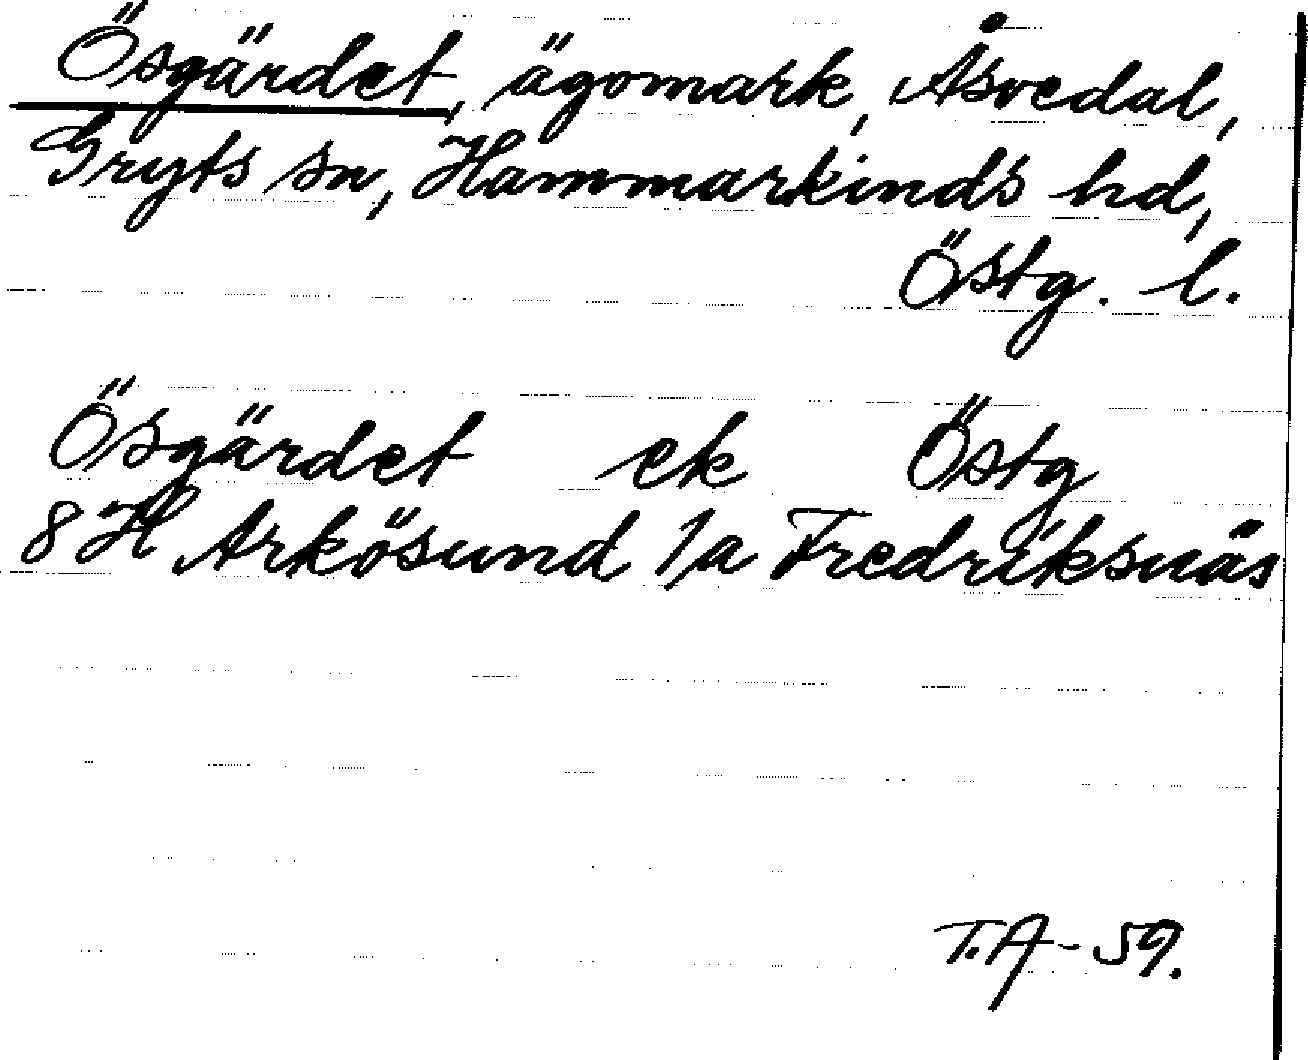 Ösgärdet, ägomark, Åsvedal,
Gryts sn, Hammarkinds hd,
Östg. l.
Ösgärdet ek Östg
8H Arkösund 1/a Fredriksnäs
T.A-59.